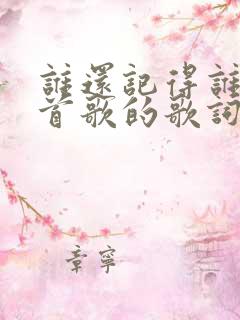 誰還記得誰
首歌的歌詞
章寧